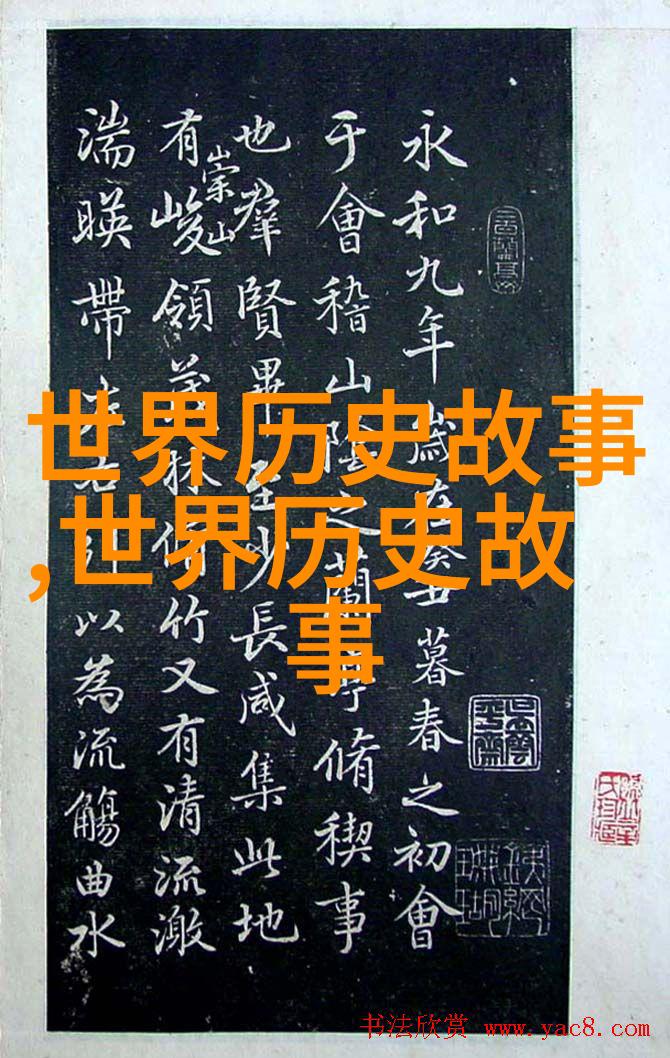 永和九年歲在癸丑暮春之初會
于會稽山陰之蘭亭脩稧事
也羣賢畢至少長咸集此地
有崇山峻領茂林脩竹又有清流激
湍暎帶左右引以為流觴曲水
世界历史故事
,世界历史故
事
书法欣赏 www.yac8.com